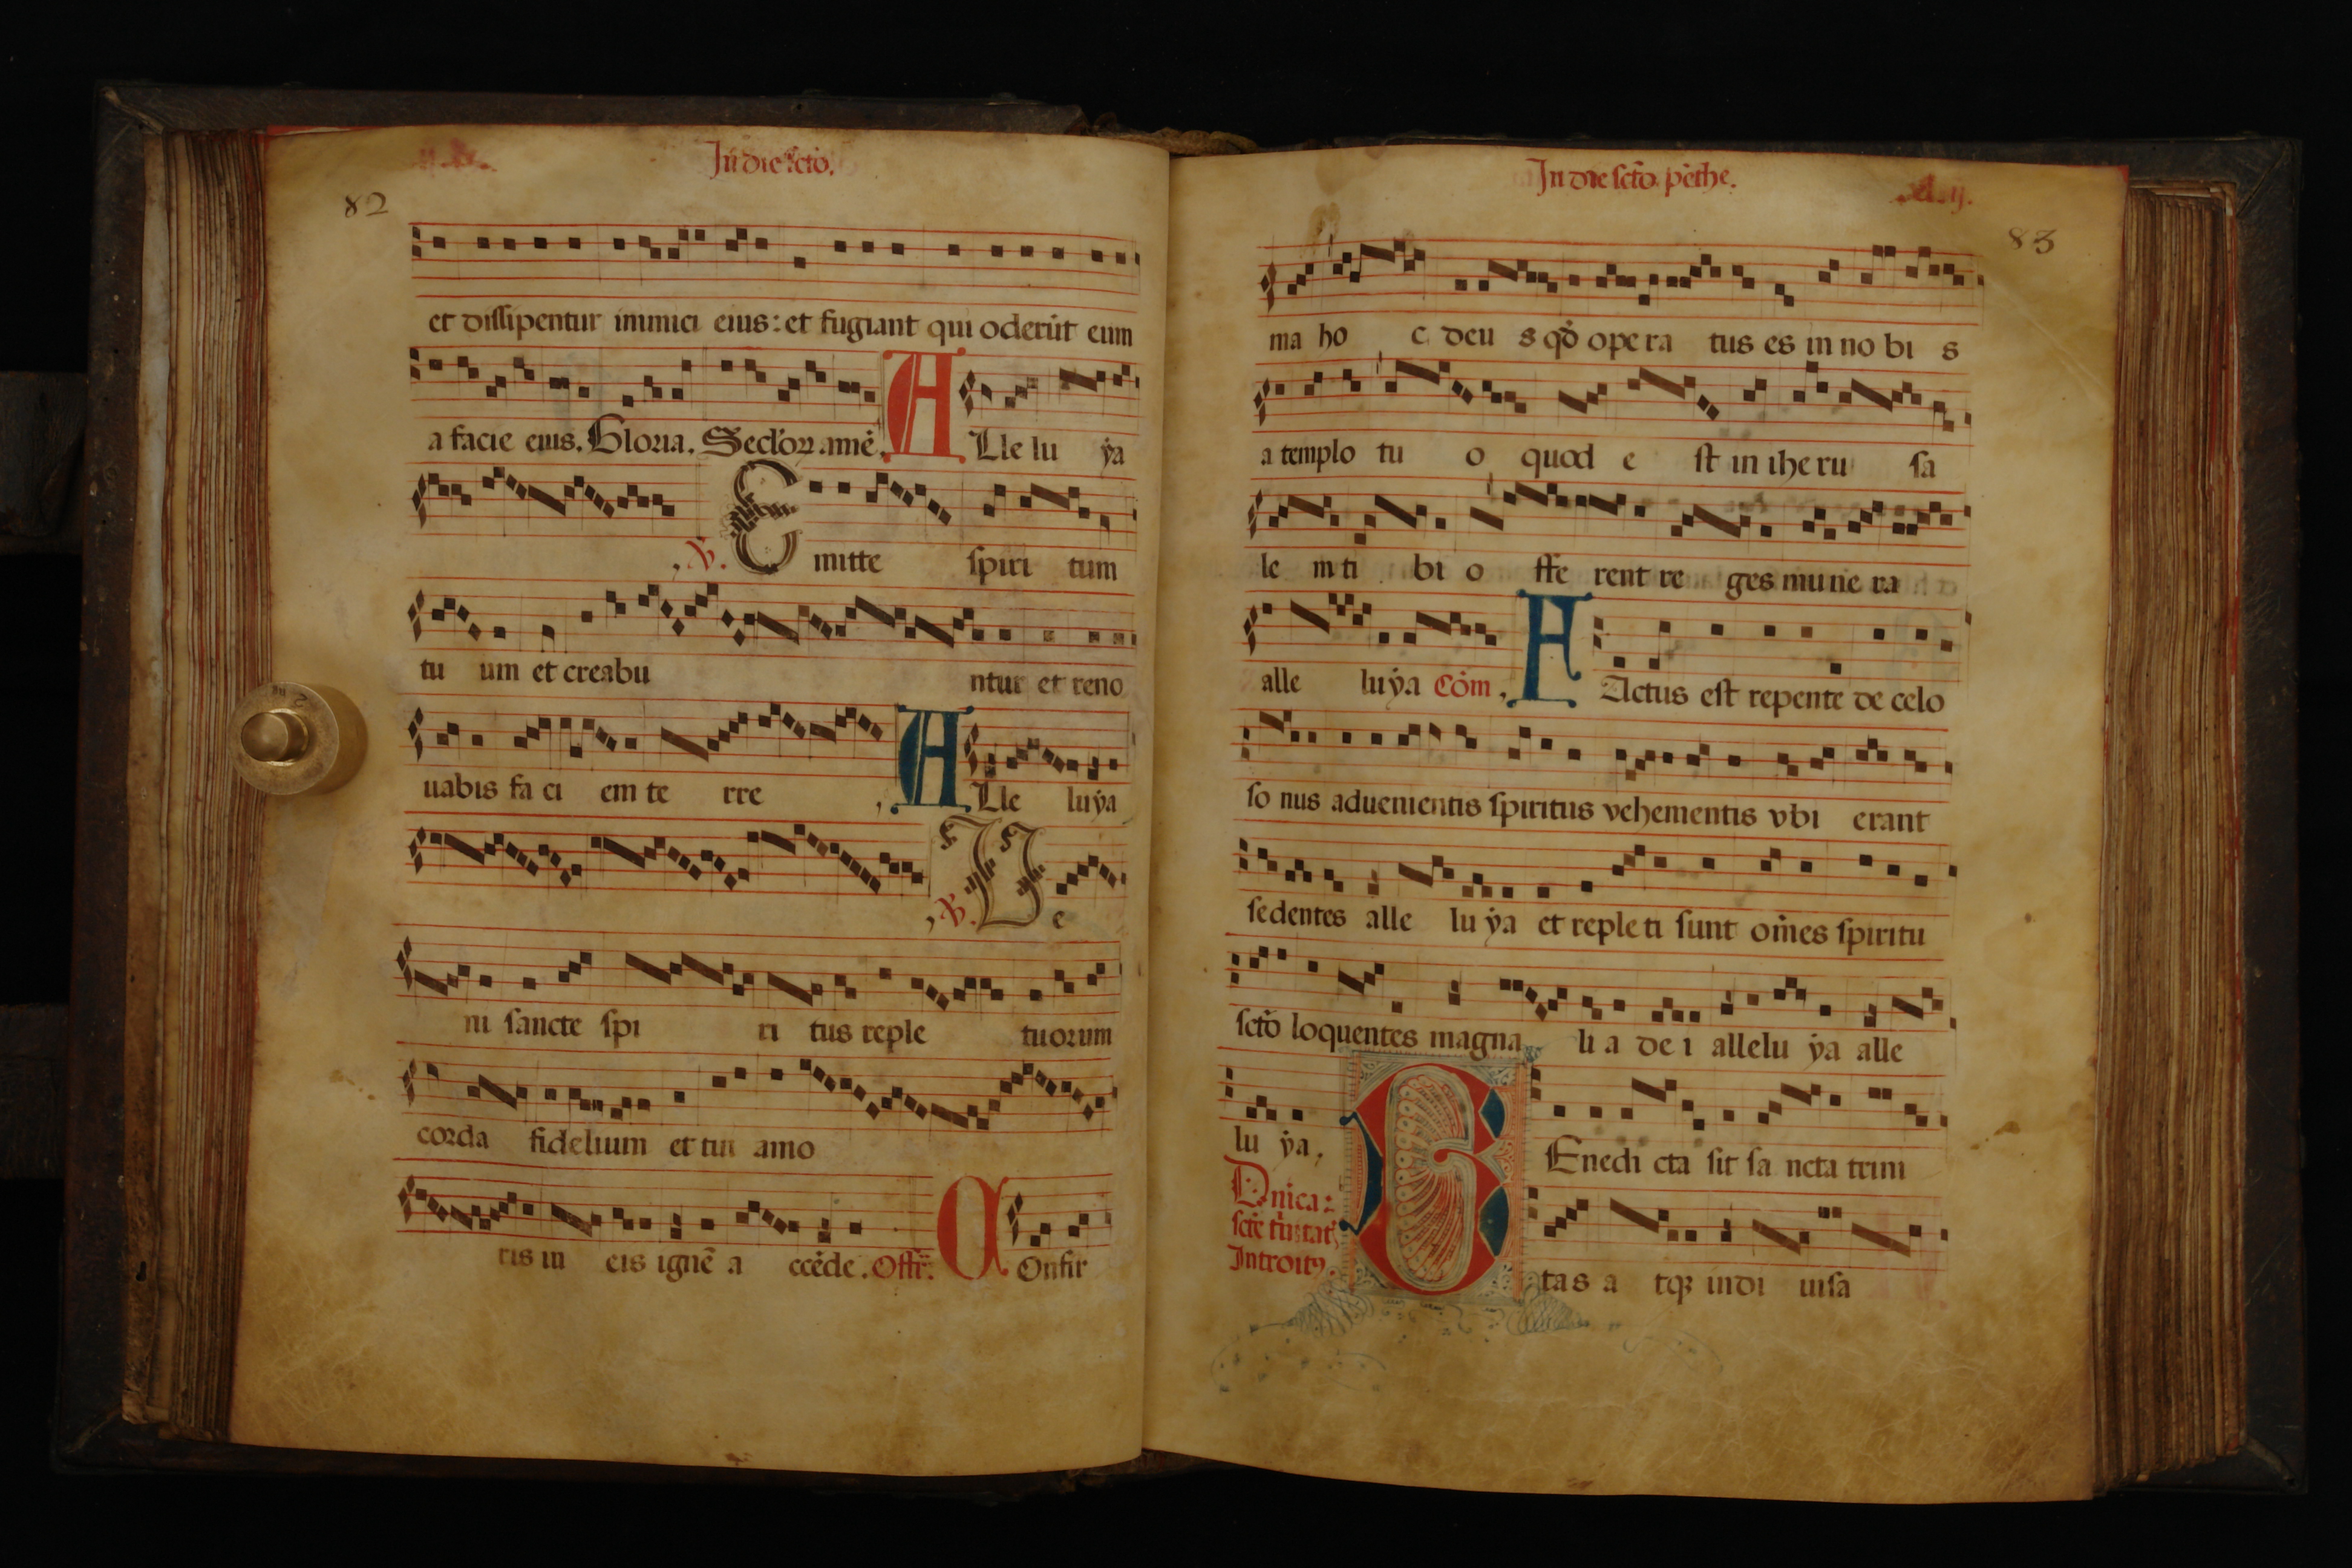 In die scto.
82
et dissipentur inimici eius: et fugiant qui oderūt eum
a facie eius. Gloria. Seclorz amē. A Lle lu ẏa
, ℣. E mitte spiri tum
tu um et creabu ntur et reno
uabis fa ci em te rre , A Lle luẏa
, ℣. V e
ni sancte spi ri tus reple tuorum
corda fidelium et tui amo
ris in eis ignē a ccēde. Offr̄. C Onfir
In die sct̄o pēthe.
83
ma ho c deu s qd̄ ope ra tus es in no bi s
a templo tu o quod e st in ihe ru sa
le m ti bi o ffe rent re ges mu ne ra
alle luẏa Cōm, F Actus est repente de celo
so nus aduenientis spiritus vehementis vbi erant
sedentes alle lu ẏa et reple ti sunt om̄es spiritu
sct̄o loquentes magna li a de i allelu ẏa alle
lu ẏa, B Enedi cta sit sa ncta trini
Dn̄ica:
scte t̄nitat
Introitꝰ.
tas a tqꝫ indi uisa